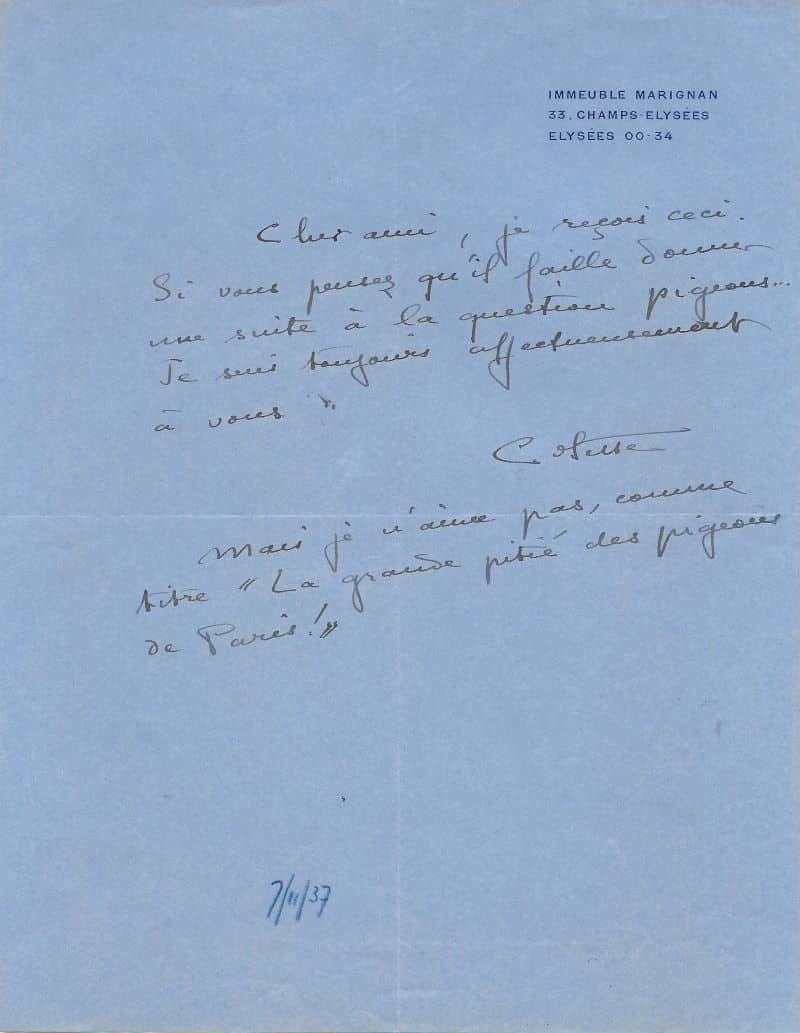 IMMEUBLE MARIGNAN
33, CHAMPS-ELYSÉES
ELYSÉES 00-34
Cher ami, je reçois ceci.
Si vous pensez qu'il faille donner
une suite à la question pigeons...
Je suis toujours affectueusement
à vous.
Colette
Mais je n'aime pas, comme
titre « La grande pitié des pigeons
de Paris! »
7/11/37